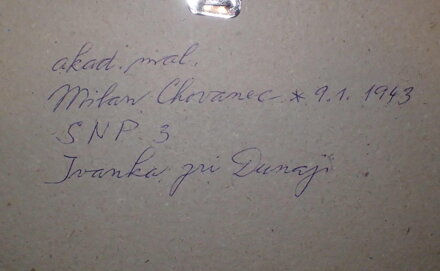 akad. mal.
Milan Chovanec * 9.1. 1943
SNP 3
Ivanka pri Dunaji